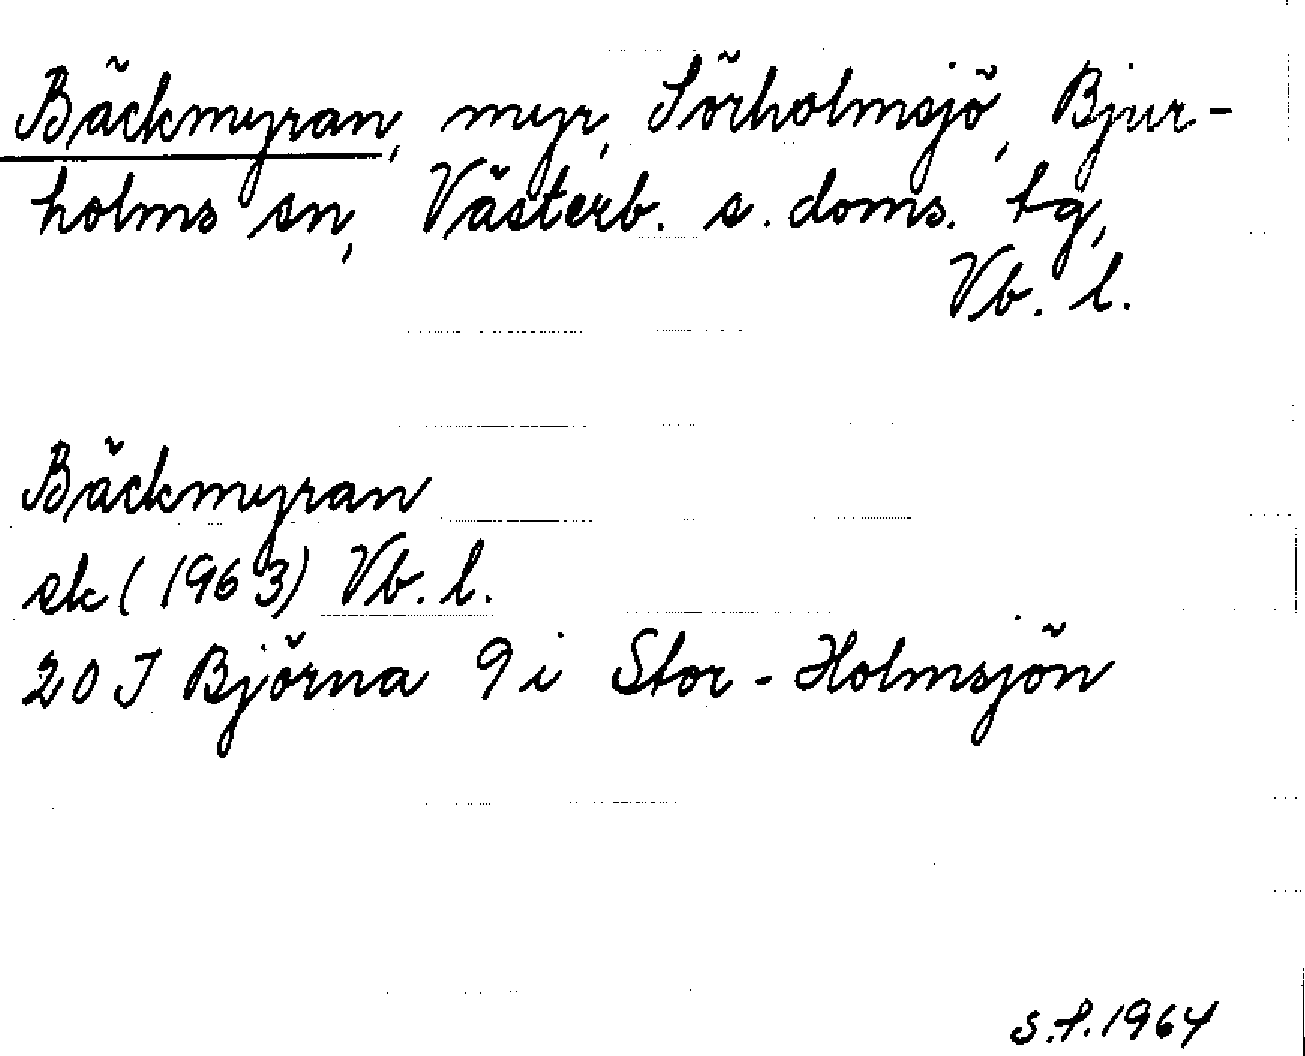 Bäckmyran, myr, Sörholmsjö, Bjur-
holms sn, Västerb. s. doms. tg,
Vb. l.
Bäckmyran
ek (1963) Vb. l.
20 J Björna 9 i Stor-Holmsjön
S.P. 1964